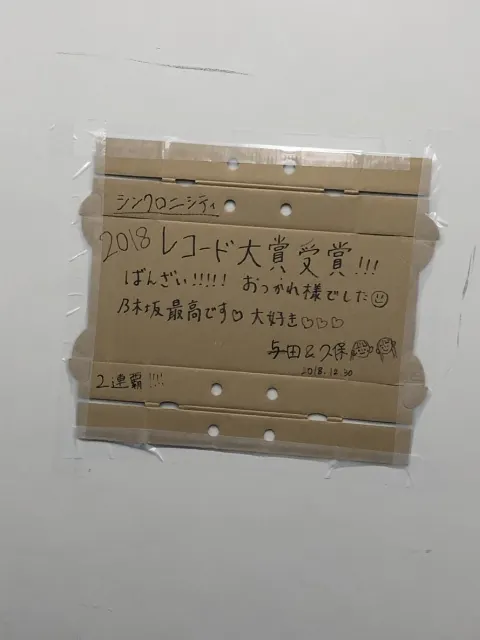 シンクロニシティ
2018 レコード大賞受賞!!!
ばんざい!!!!! おつかれ様でした
乃木坂最高です♡ 大好き♡♡♡
与田&久保
2018.12.30
2連覇!!!!